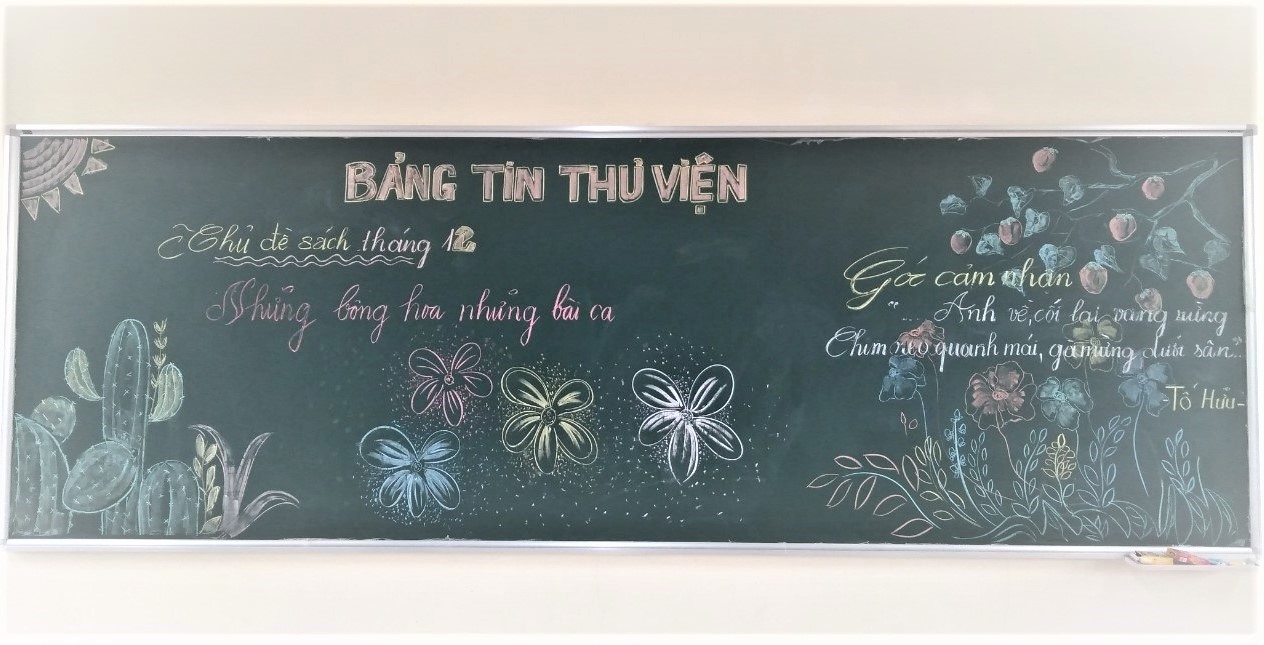 BẢNG TIN THƯ VIỆN
Chủ đề sách tháng 12
Những bông hoa những bài ca
Góc cảm nhận
"... Anh về, cối lại vang rừng
Chim reo quanh mái, gà mừng dưới sân..."
-Tố Hữu-